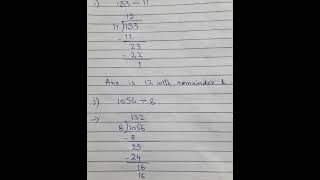 i) 133 ÷ 11
12
11)133
- 11
23
- 22
1
Ans is 12 with remainder 1
j) 1056 ÷ 8
→ 132
8)1056
-8
25
-24
16
16